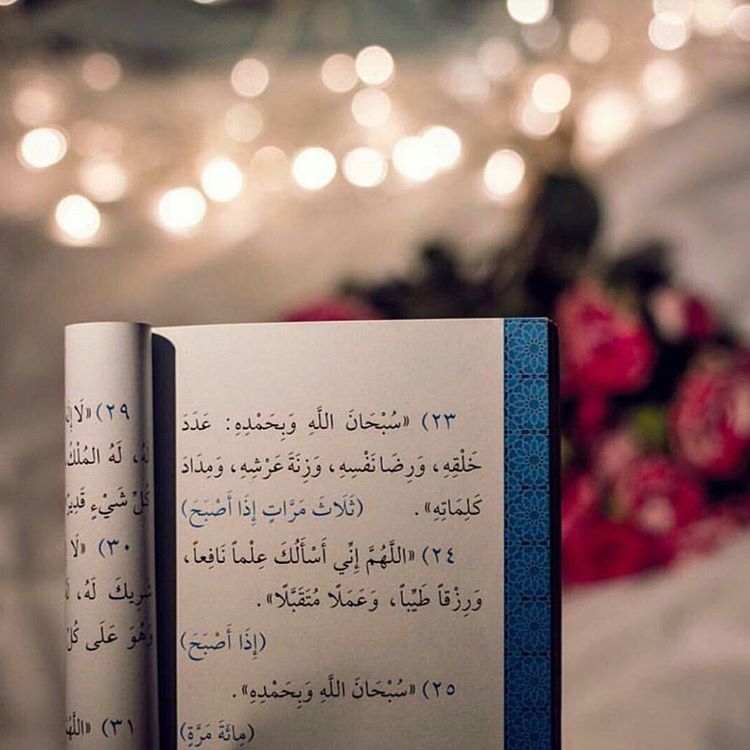 ٢٣) «سُبْحَانَ اللَّهِ وَبِحَمْدِهِ: عَدَدَ
خَلْقِهِ، وَرِضَا نَفْسِهِ، وَزِنَةَ عَرْشِهِ، وَمِدَادَ
كَلِمَاتِهِ». (ثَلَاثَ مَرَّاتٍ إِذَا أَصْبَحَ)
٢٤) «اللَّهُمَّ إِنِّي أَسْأَلُكَ عِلْماً نَافِعاً،
وَرِزْقاً طَيِّباً، وَعَمَلًا مُتَقَبَّلًا».
(إِذَا أَصْبَحَ)
٢٥) «سُبْحَانَ اللَّهِ وَبِحَمْدِهِ».
(مِائَةَ مَرَّةٍ)
٢٩) «لَا
لَهُ المُلْكُ
كُلِّ شَيْءٍ قَدِيرٌ
٣٠) «لَا
شَرِيكَ لَهُ،
وَهُوَ عَلَى كُلِّ
٣١)